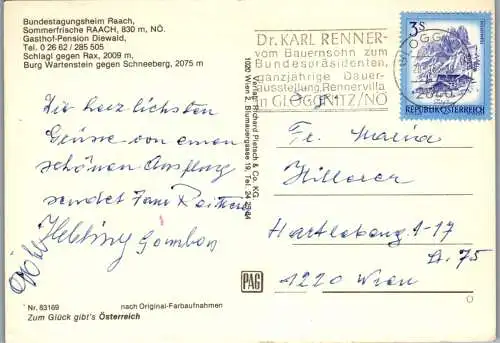 Bundestagungsheim Raach,
Sommerfrische RAACH, 830 m, NÖ.
Gasthof-Pension Diewald,
Tel. 0 26 62 / 285 505
Schlagl gegen Rax, 2009 m,
Burg Wartenstein gegen Schneeberg, 2075 m
Die herzlichsten
Grüsse von einem
schönen Ausflug
sendet Fam.
Nr. 83169
nach Original-Farbaufnahmen
Zum Glück gibt's Österreich
Verlag: Richard Pietsch & Co. KG.
1020 Wien 2, Blumauergasse 19, Tel. 24
PAG
Dr. KARL RENNER-
vom Bauernsohn zum
Bundespräsidenten,
ganzjährige Dauer-
ausstellung, Rennervilla
in GLOGGNITZ/NÖ
3S
REPUBLIK ÖSTERREICH
Fr. Maria
Hillerer
1-17
1220 Wien